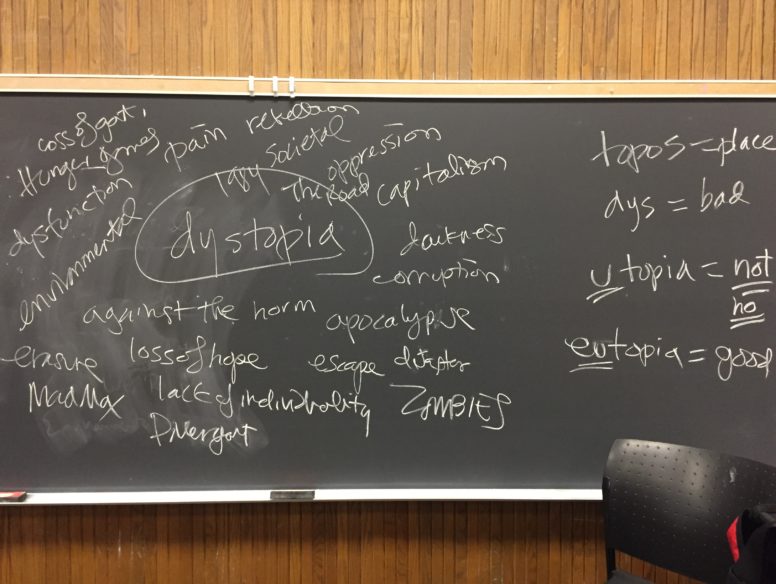 loss of govt.
Hunger games
pain
rebellion
societal
oppression
1984
The Road
capitalism
dysfunction
environmental
dystopia
darkness
corruption
against the norm
apocalypse
erasure
loss of hope
escape
disaster
Mad Max
lack of individuality
ZOMBIES
Divergent
topos = place
dys = bad
utopia = not
no
eutopia = good